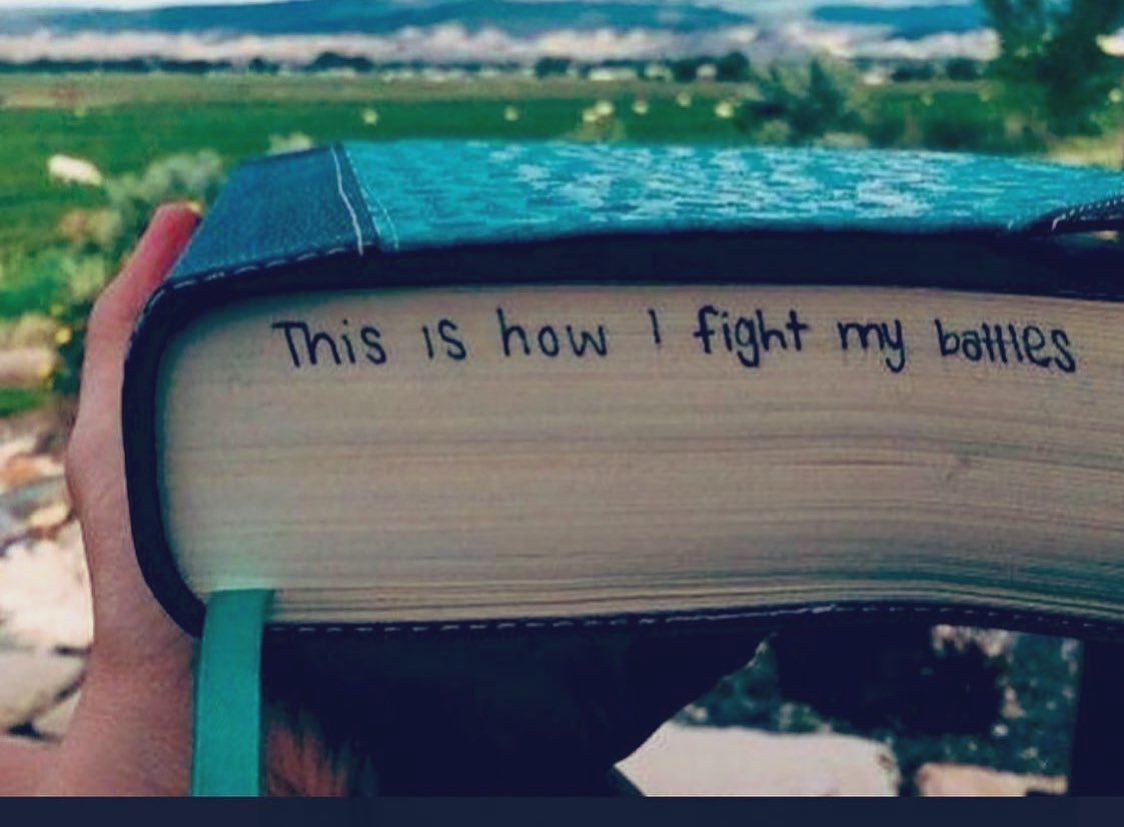 This is how I fight my battles